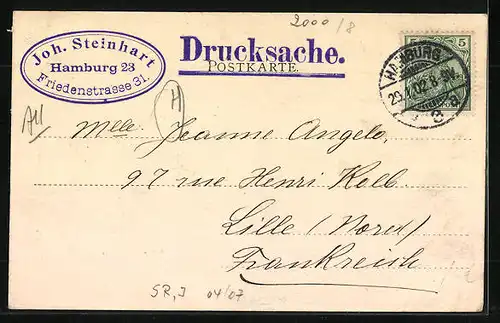 2000/8
Joh. Steinhart
Hamburg 23
Friedenstrasse 31.
Drucksache.
POSTKARTE.
5 5
HAMBURG
29.1.02. 6-9V.
3
H
Mlle. Jeanne Angelo,
97 rue Henri Kolb
Lille (Nord)
Frankreich
SR, J 04/07